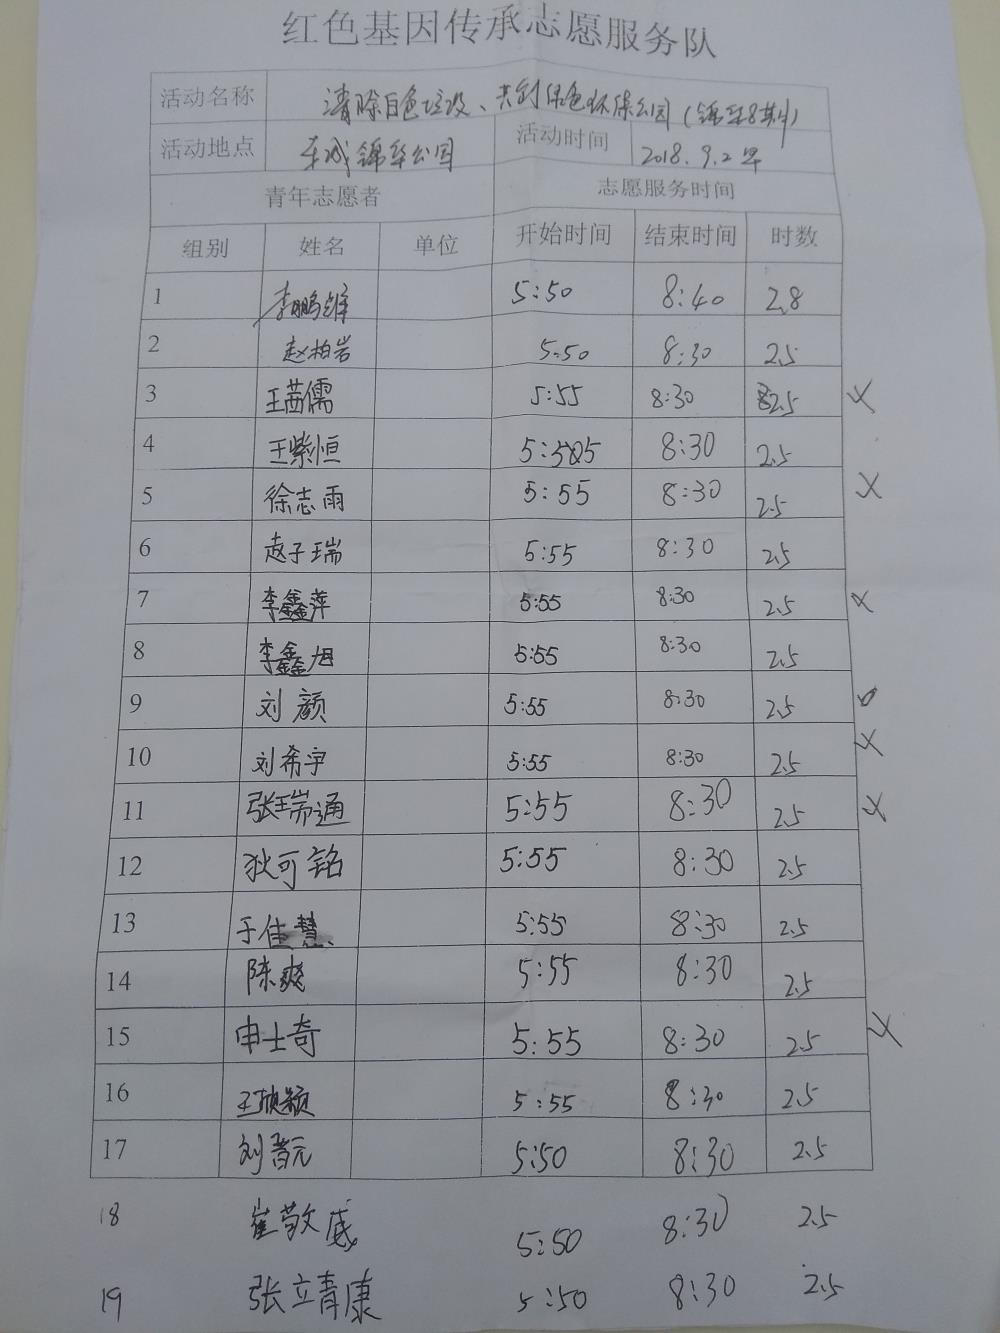 红色基因传承志愿服务队
活动名称 清除白色垃圾、共创绿色环保公园(锦华8期)
活动地点 东城锦华公园 活动时间 2018.9.2早
青年志愿者 志愿服务时间
组别 姓名 单位 开始时间 结束时间 时数
1 李鹏维 5:50 8:40 2.8
2 赵柏岩 5:50 8:30 2.5
3 王茜儒 5:55 8:30 2.5
4 王紫恒 5:55 8:30 2.5
5 徐志雨 5:55 8:30 2.5
6 赵子瑞 5:55 8:30 2.5
7 李鑫萍 5:55 8:30 2.5
8 李鑫旭 5:55 8:30 2.5
9 刘颜 5:55 8:30 2.5
10 刘希宇 5:55 8:30 2.5
11 张瑞通 5:55 8:30 2.5
12 狄可铭 5:55 8:30 2.5
13 于佳慧 5:55 8:30 2.5
14 陈爽 5:55 8:30 2.5
15 申士奇 5:55 8:30 2.5
16 王颖 5:55 8:30 2.5
17 刘元 5:50 8:30 2.5
18 崔敬 5:50 8:30 2.5
19 张立青康 5:50 8:30 2.5